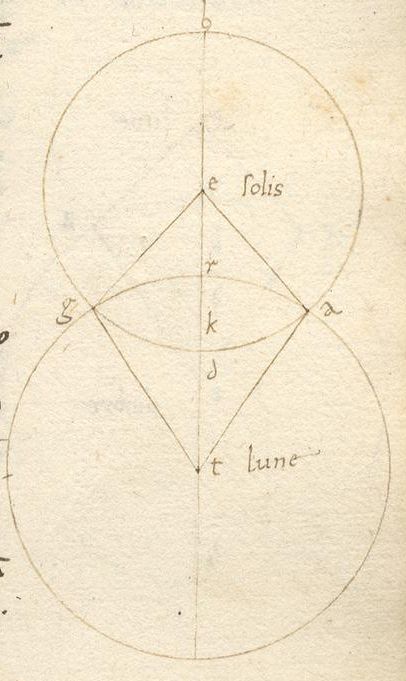 b
e solis
r
g a
k
d
t lune